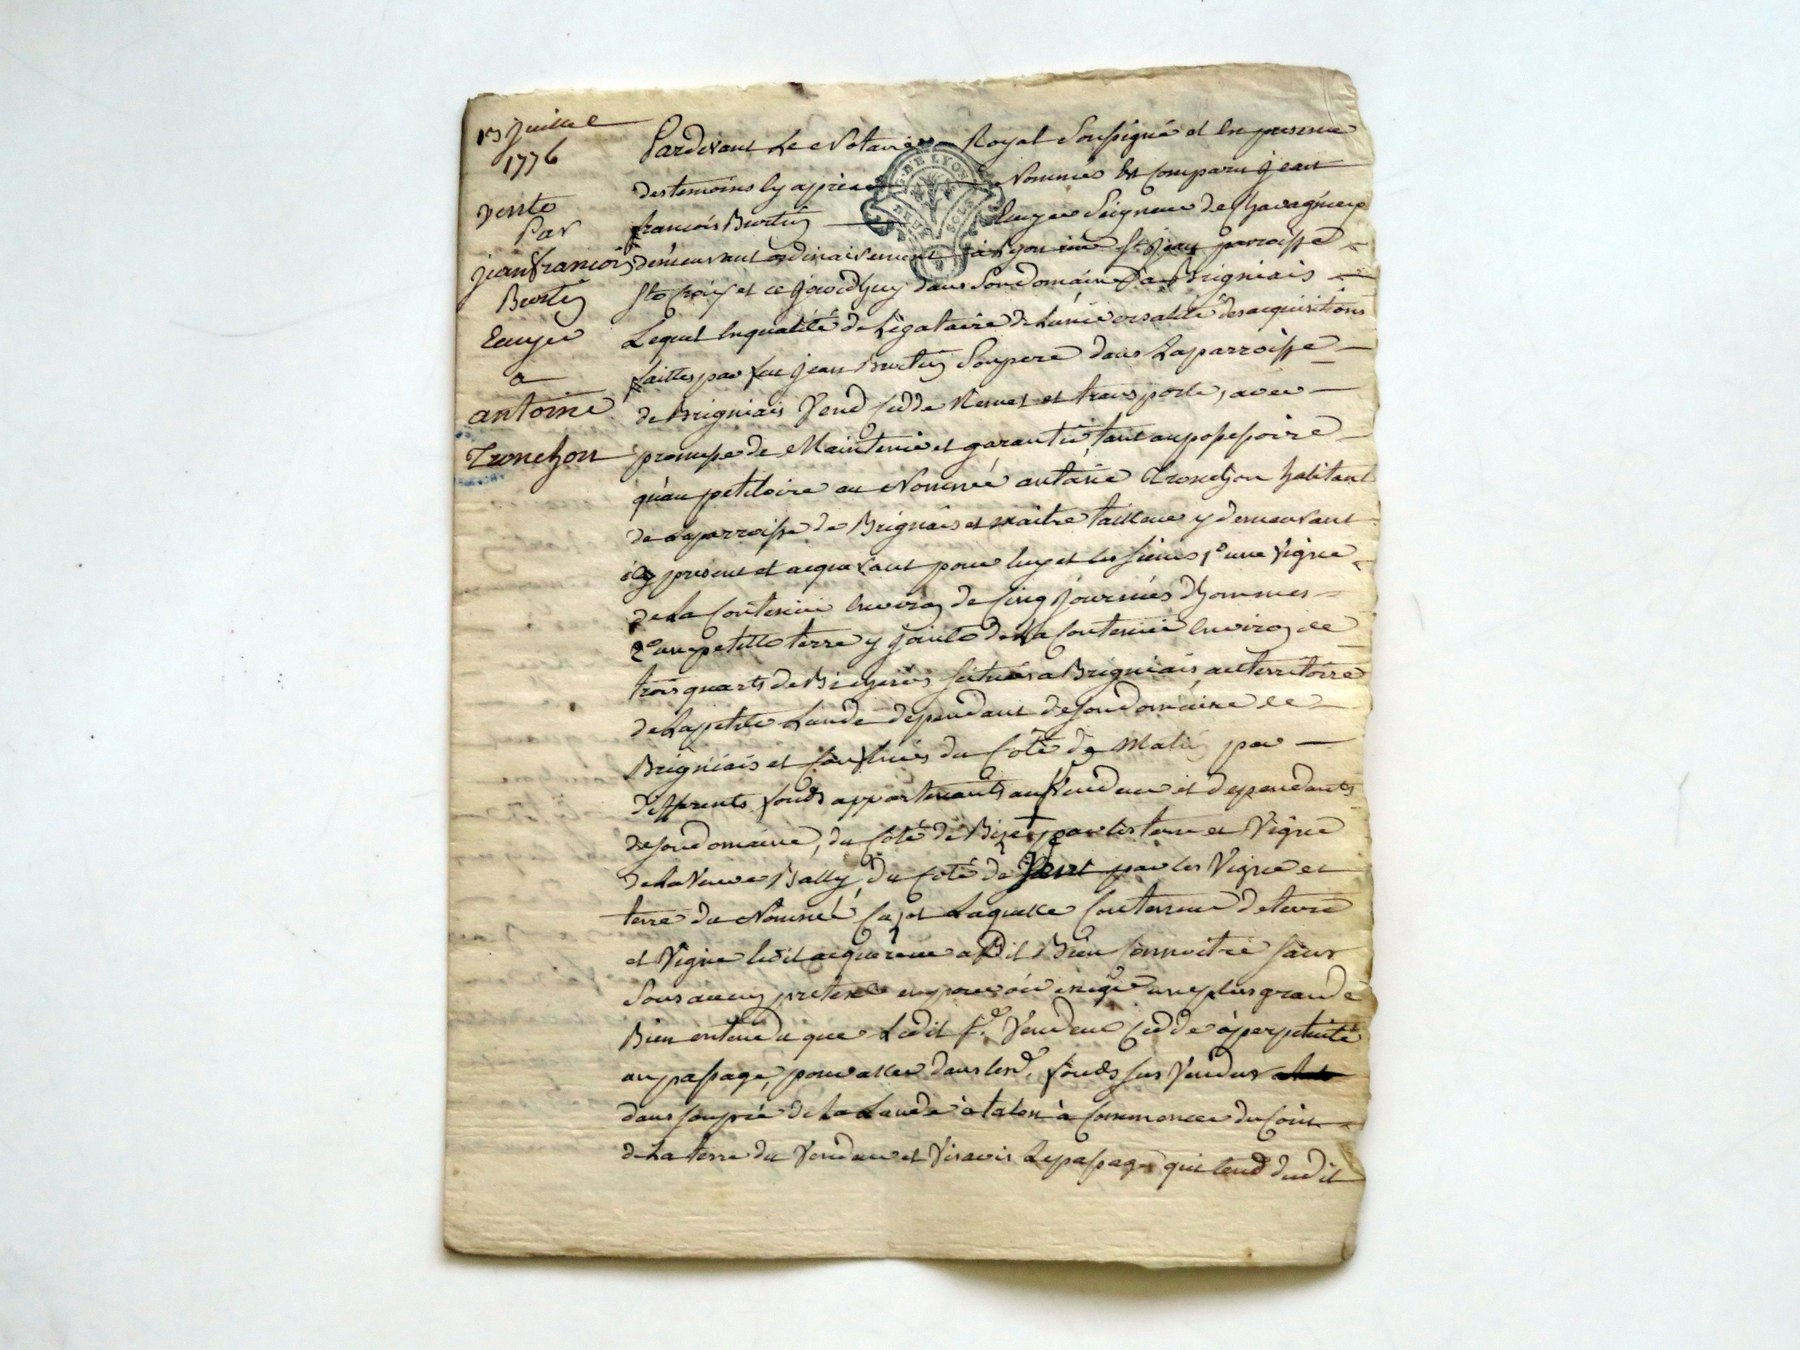 13 Juillet
1776
vente
Par
jean francois
Burtin
Ecuyer
a
antoine
Tronchon
G. DE LYON
DEUX SOLS
Pardevant Le Notaire Royal Soussigné et En presence
des temoins Cy apres Nommés Est Comparu jean
francois Burtin Ecuyer Seigneur de Chavagnieux
demeurant ordinairement a Lyon rue St jean parroisse
Ste Croix et ce jourdhuy dans Son domaine a Brigniais
Lequel En qualité de Legataire de Luniversalité des acquisitions
faittes par feu jean Burtin Son pere dans La parroisse
de Brigniais Vend Cedde Remet et transporte, avec
promesse de Maintenie et garantie tant au possessoire
qu'au petitoire au Nommé antoine Tronchon habitant
de la parroisse de Brignais et maitre tailleur y demeurant
icy present et acquerant pour luy et les siens 1º une Vigne
de La Contenue Environ de Cinq journées d'hommes
2º une petitte terre y jointe de La Contenue Environ de
trois quarts de Bicherée, scitués a Brigniais, au territoire
de La petite Lande dependant de son domaine de
Brigniais et Confinés du Coté de Matin par
differents fonds appartenants au Vendeur et dependants
de son domaine, du Coté de Bize par les terre et Vigne
de La Veuve Bally, du Coté de par les Vigne et
terre du Nommé Laquelle Contenue de terre
et Vigne ledit acquereur a dit Bien Connoitre sans
Sous aucun pretexte en pouvoir exiger une plus grande
Bien entendu que Ledit Sr. Vendeur Cedde à perpetuité
un passage, pour aller dans lesd. fonds sus Vendus
dans son pré de La Lande à talon à Commencer du Coin
de La terre du Vendeur et Visavis Le passage qui tend dudit